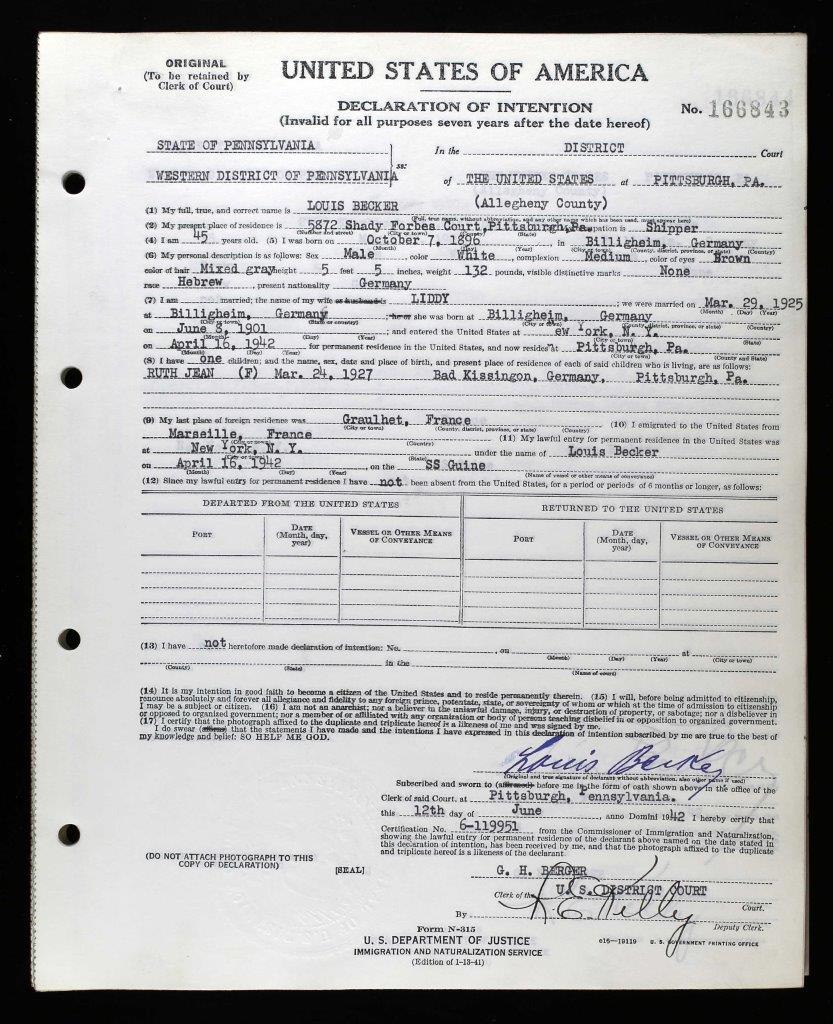 ORIGINAL
(To be retained by
Clerk of Court)
UNITED STATES OF AMERICA
DECLARATION OF INTENTION
(Invalid for all purposes seven years after the date hereof)
No. 166843
STATE OF PENNSYLVANIA
WESTERN DISTRICT OF PENNSYLVANIA
ss:
In the DISTRICT Court
of THE UNITED STATES at PITTSBURGH, PA.
(1) My full, true, and correct name is LOUIS BECKER (Allegheny County)
(Full, true name, without abbreviation, and any other name which has been used, must appear here)
(2) My present place of residence is 5872 Shady Forbes Court, Pittsburgh, Pa. occupation is Shipper
(Number and street) (City or town) (County) (State)
(4) I am 45 years old. (5) I was born on October 7, 1896 in Billigheim, Germany
(Month) (Day) (Year) (City or town) (County, district, province, or state) (Country)
(6) My personal description is as follows: Sex Male, color White, complexion Medium, color of eyes Brown
color of hair Mixed gray height 5 feet 5 inches, weight 132 pounds, visible distinctive marks None
race Hebrew, present nationality Germany
(7) I am married; the name of my wife or husband is LIDDY; we were married on Mar. 29, 1925
(Month) (Day) (Year)
at Billigheim, Germany; he or she was born at Billigheim, Germany
(City or town) (State or country) (City or town) (County, district, province, or state) (Country)
on June 8, 1901; and entered the United States at ew York, N. Y.
(Month) (Day) (Year) (City or town) (State)
on April 16, 1942 for permanent residence in the United States, and now resides at Pittsburgh, Pa.
(Month) (Day) (Year) (City or town) (County and State)
(8) I have one children; and the name, sex, date and place of birth, and present place of residence of each of said children who is living, are as follows:
RUTH JEAN (F) Mar. 24, 1927 Bad Kissingon, Germany, Pittsburgh, Pa.
(9) My last place of foreign residence was Graulhet, France (10) I emigrated to the United States from
(City or town) (County, district, province, or state) (Country)
Marseille, France (11) My lawful entry for permanent residence in the United States was
(City or town) (Country)
at New York, N. Y. under the name of Louis Becker
(City or town) (State)
on April 16, 1942, on the SS Guine
(Month) (Day) (Year) (Name of vessel or other means of conveyance)
(12) Since my lawful entry for permanent residence I have not been absent from the United States, for a period or periods of 6 months or longer, as follows:
DEPARTED FROM THE UNITED STATES RETURNED TO THE UNITED STATES
PORT DATE (Month, day, year) VESSEL OR OTHER MEANS OF CONVEYANCE PORT DATE (Month, day, year) VESSEL OR OTHER MEANS OF CONVEYANCE
(13) I have not heretofore made declaration of intention: No. , on at
(Month) (Day) (Year) (City or town)
in the
(County) (State) (Name of court)
(14) It is my intention in good faith to become a citizen of the United States and to reside permanently therein. (15) I will, before being admitted to citizenship,
renounce absolutely and forever all allegiance and fidelity to any foreign prince, potentate, state, or sovereignty of whom or which at the time of admission to citizenship
I may be a subject or citizen. (16) I am not an anarchist; nor a believer in the unlawful damage, injury, or destruction of property, or sabotage; nor a disbeliever in
or opposed to organized government; nor a member of or affiliated with any organization or body of persons teaching disbelief in or opposition to organized government.
(17) I certify that the photograph affixed to the duplicate and triplicate hereof is a likeness of me and was signed by me.
I do swear (affirm) that the statements I have made and the intentions I have expressed in this declaration of intention subscribed by me are true to the best of
my knowledge and belief: SO HELP ME GOD.
Louis Becker
(Original and true signature of declarant without abbreviation, also other name if used)
Subscribed and sworn to (affirmed) before me in the form of oath shown above in the office of the
Clerk of said Court, at Pittsburgh, Pennsylvania.
this 12th day of June anno Domini 1942 I hereby certify that
Certification No. 6-119951 from the Commissioner of Immigration and Naturalization,
showing the lawful entry for permanent residence of the declarant above named on the date stated in
this declaration of intention, has been received by me, and that the photograph affixed to the duplicate
and triplicate hereof is a likeness of the declarant
(DO NOT ATTACH PHOTOGRAPH TO THIS
COPY OF DECLARATION)
[SEAL]
G. H. BERGER
Clerk of the U. S. DISTRICT COURT Court.
By R.E. Kelly Deputy Clerk.
Form N-315
U. S. DEPARTMENT OF JUSTICE
IMMIGRATION AND NATURALIZATION SERVICE
(Edition of 1-13-41)
c16-19119 U. S. GOVERNMENT PRINTING OFFICE